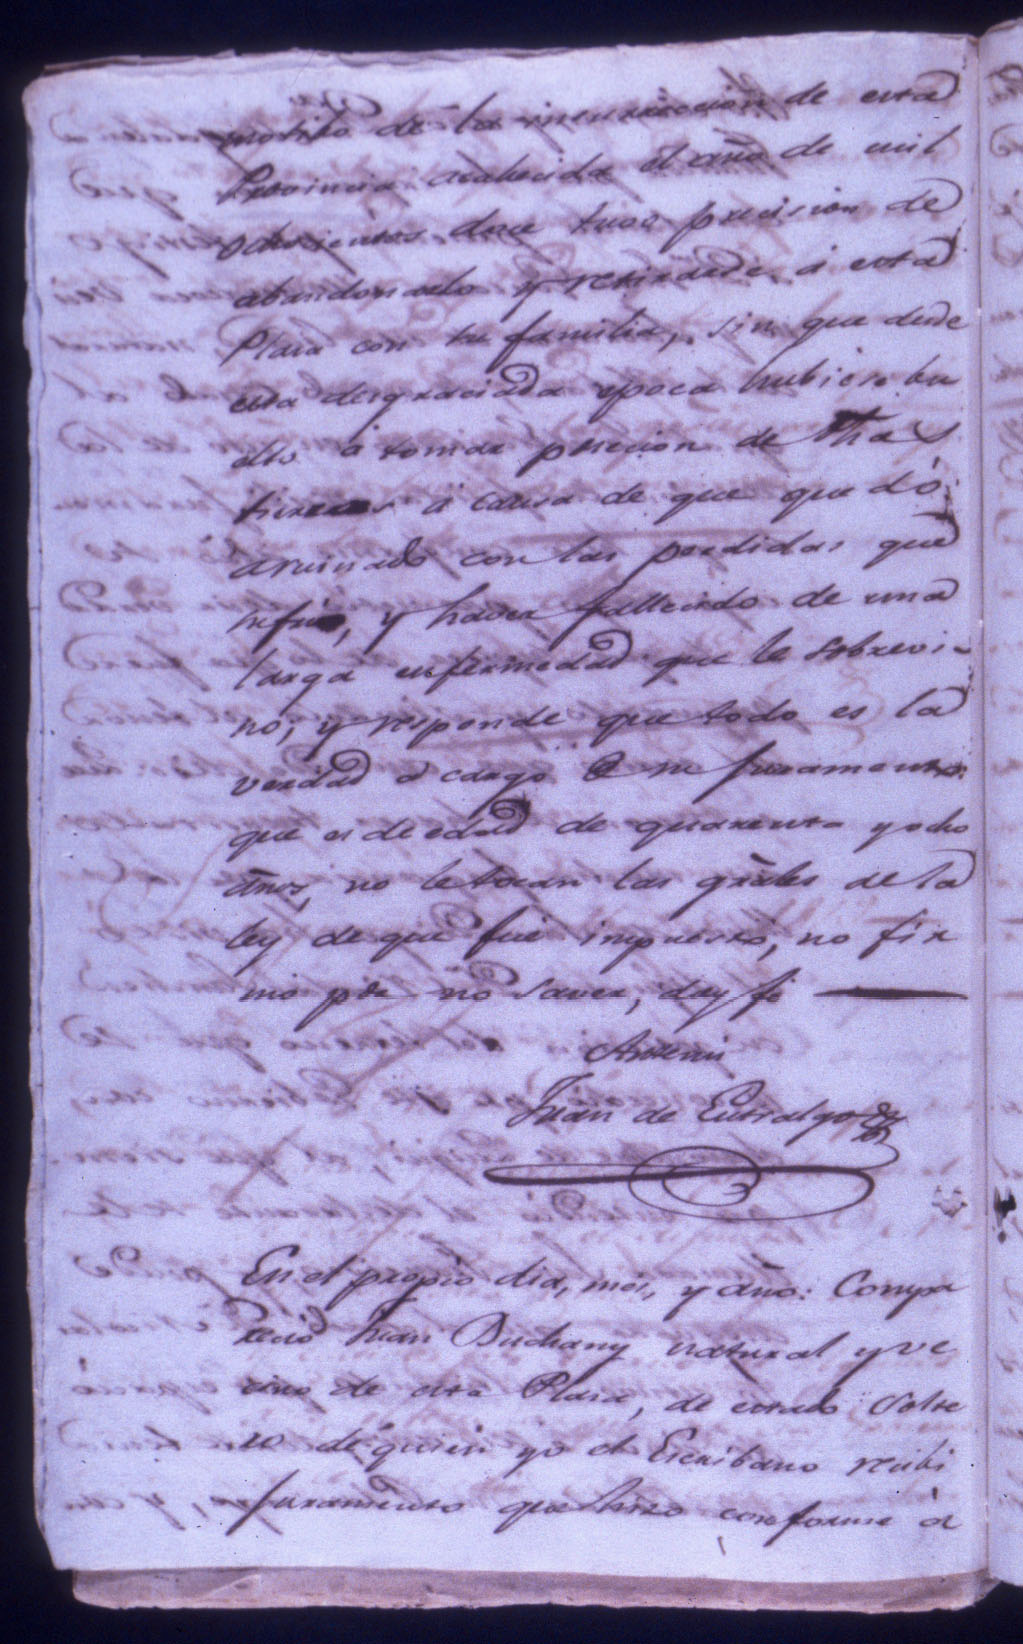 motibo de la insurreccion de esta
Provincia acahecida el año de mil
ochosientos doce tubo precision de
abandonarlo y retirarse á esta
Plasa con su familia, sin que desde
esta desgraciada epoca hubiese bu
elto á tomar posecion de dhas
tierras á causa de que quedó
arruinado con las perdidas que
sufrio, y haver fallecido de una
larga enfermedad que le sobrevi-
no; y responde que todo es la
verdad á cargo de su juramento:
que es de edad de quarenta y ocho
años, no le tocan las grāles de la
ley de que fue impuesto, no fir
mó por no saver, doy fé
Antemi
Juan de Entralgo
En el propio dia, mes, y año: Compa
recio Juan Buchany natural y ve
cino de esta Plasa, de estado Solte
ro de quien yo el Escribano recibi
juramento que hizo conforme á